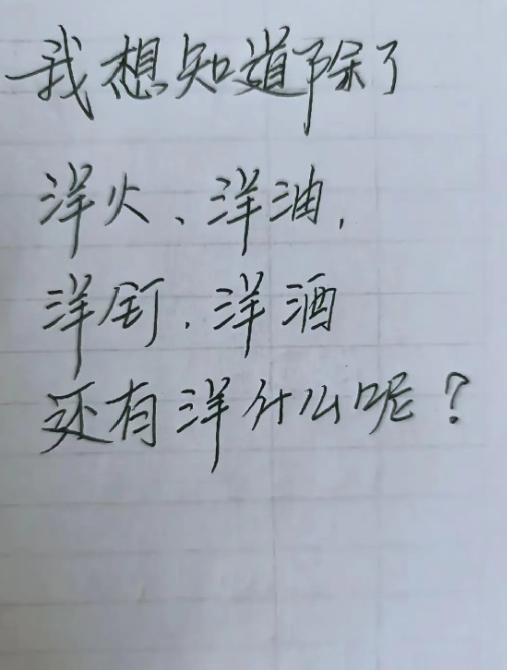 我想知道除了
洋火、洋油,
洋钉、洋酒
还有洋什么呢?